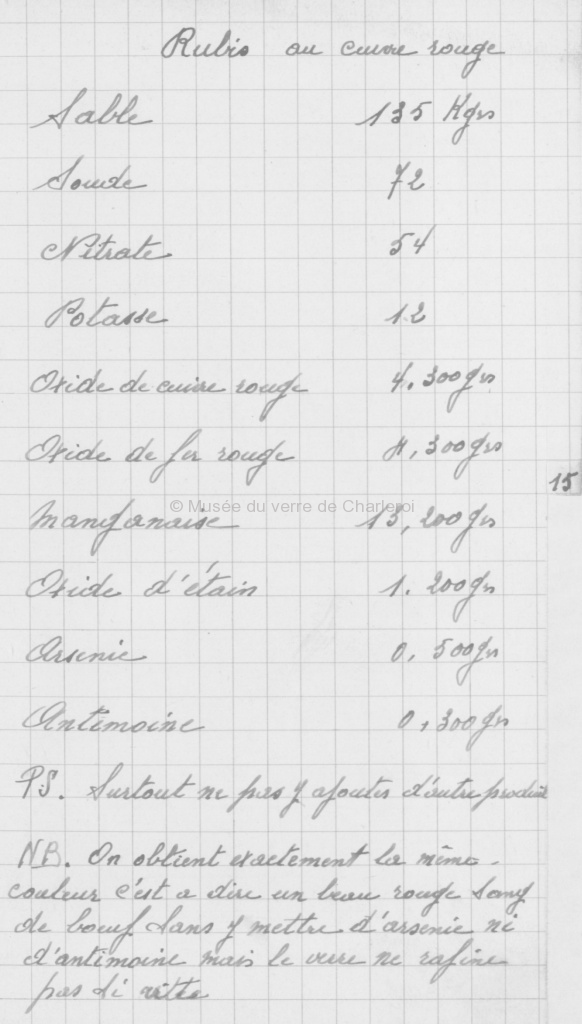 Rubis au cuivre rouge
Sable 135 Kgrs
Soude 72
Nitrate 54
Potasse 12
Oxide de cuivre rouge 4.300grs
Oxide de fer rouge 4,300grs
15
© Musée du verre de Charleroi
Manganaise 13,200grs
Oxide d'étain 1.200grs
Arsenic 0,500grs
Antimoine 0,300grs
PS. Surtout ne pas y ajouter d'autre produit
NB. On obtient exactement la même
couleur c'est a dire un beau rouge Sang
de bœuf Sans y mettre d'arsenic ni
d'antimoine mais le verre ne rafine
pas si vite